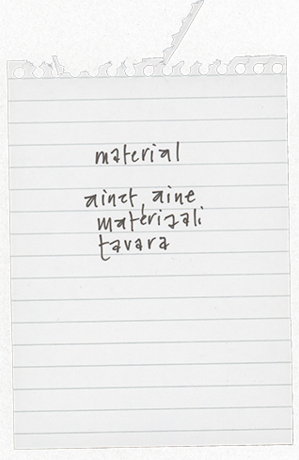 material
ainet, aine
materiaali
tavara